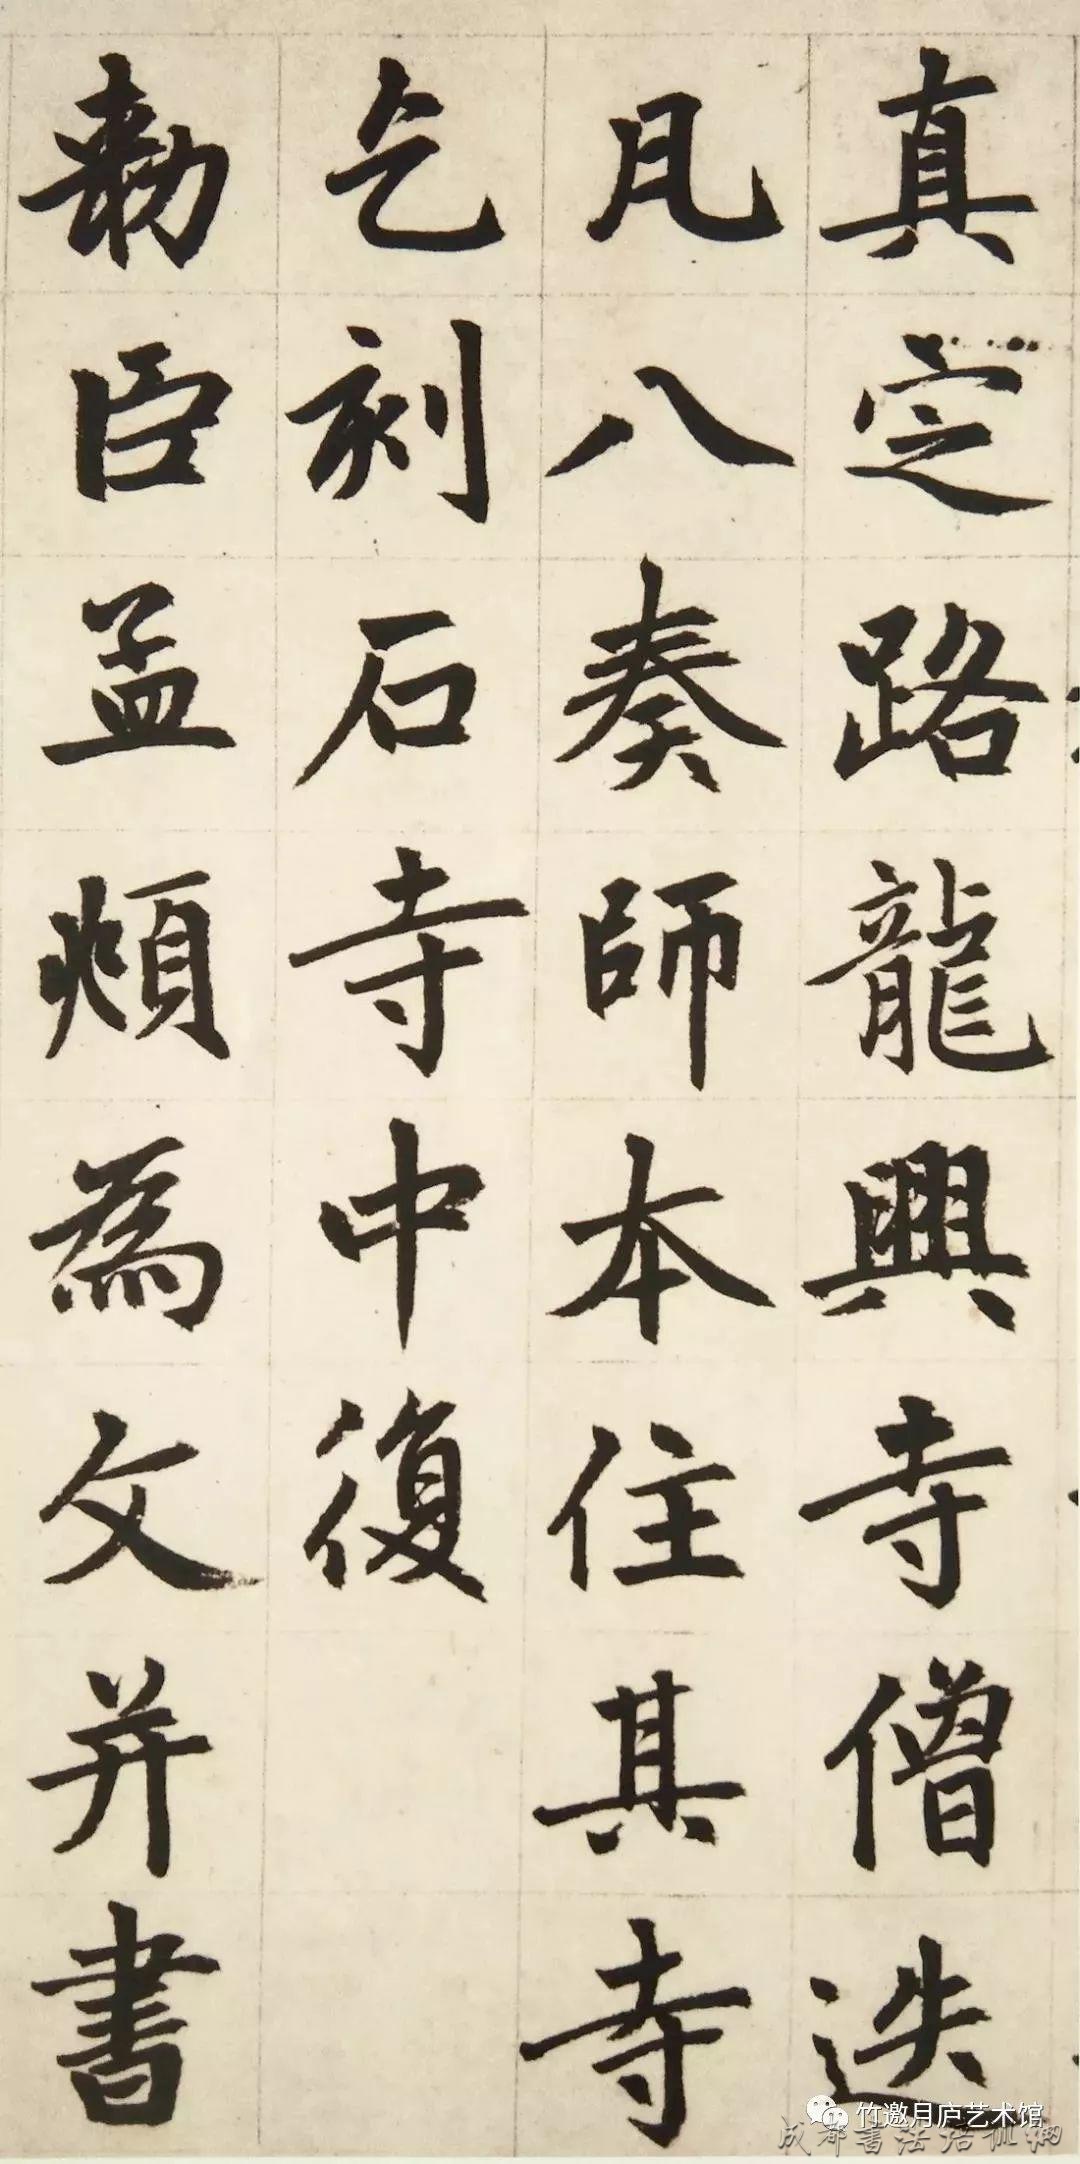 真定路龍興寺僧迭
凡八奏師本住其寺
乞刻石寺中復
勅臣孟頫為文并書
竹邀月庐艺术馆
成都书法培训网